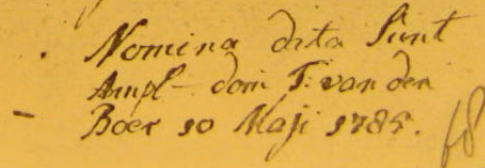 . Nomina data sunt
Ampl– dom T: van den
– Boer 10 Maji 1785.